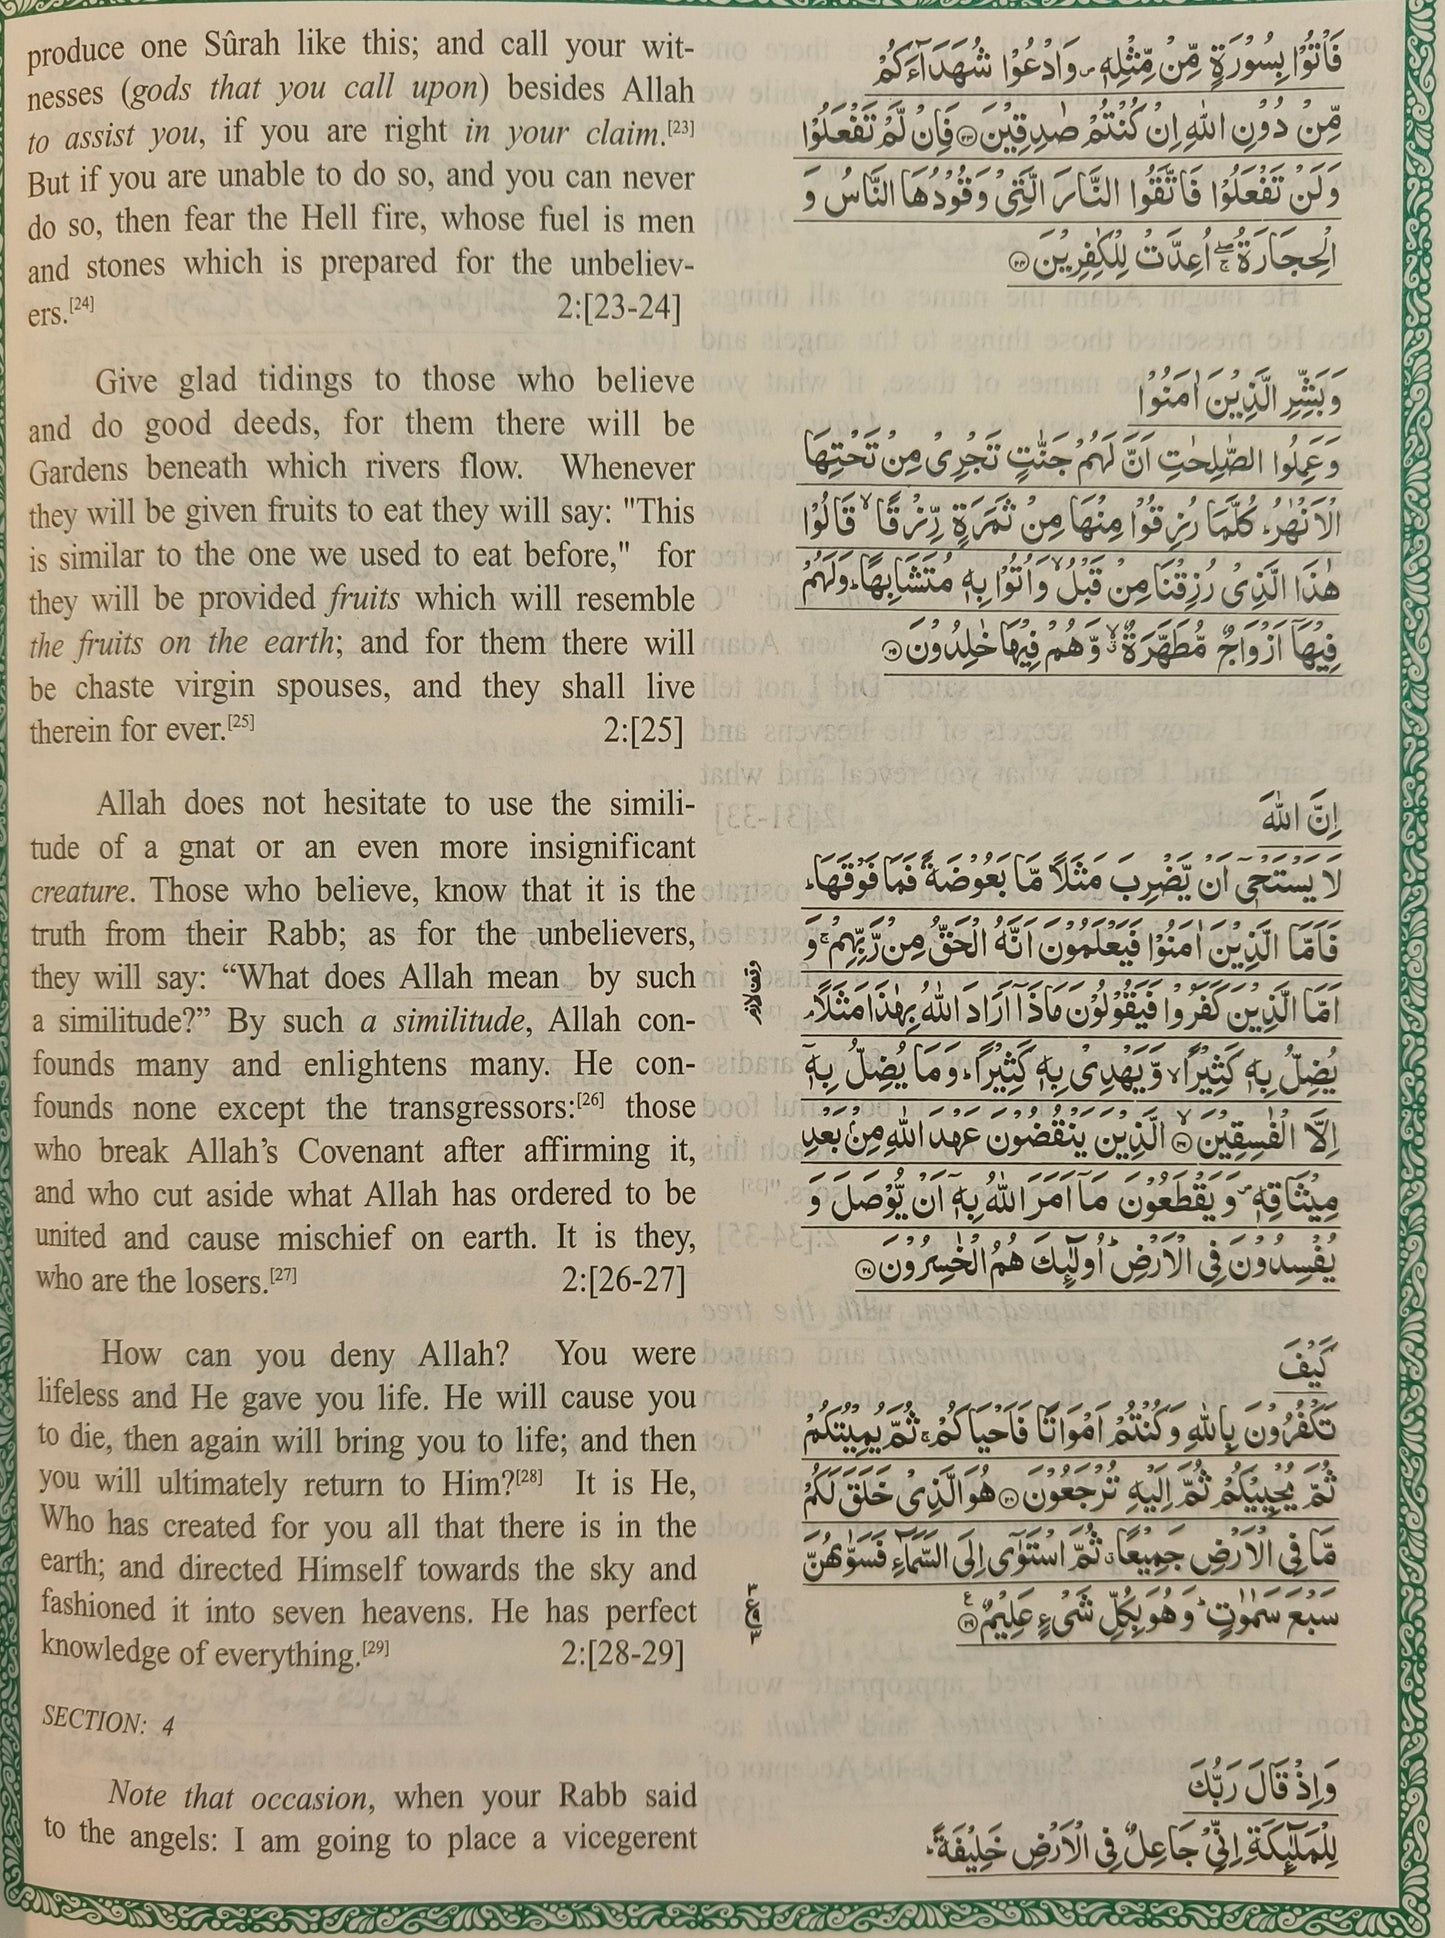 produce one Sûrah like this; and call your wit-
nesses (gods that you call upon) besides Allah
to assist you, if you are right in your claim.[23]
But if you are unable to do so, and you can never
do so, then fear the Hell fire, whose fuel is men
and stones which is prepared for the unbeliev-
ers.[24] 2:[23-24]
Give glad tidings to those who believe
and do good deeds, for them there will be
Gardens beneath which rivers flow. Whenever
they will be given fruits to eat they will say: "This
is similar to the one we used to eat before," for
they will be provided fruits which will resemble
the fruits on the earth; and for them there will
be chaste virgin spouses, and they shall live
therein for ever.[25] 2:[25]
Allah does not hesitate to use the simili-
tude of a gnat or an even more insignificant
creature. Those who believe, know that it is the
truth from their Rabb; as for the unbelievers,
they will say: “What does Allah mean by such
a similitude?” By such a similitude, Allah con-
founds many and enlightens many. He con-
founds none except the transgressors:[26] those
who break Allah’s Covenant after affirming it,
and who cut aside what Allah has ordered to be
united and cause mischief on earth. It is they,
who are the losers.[27] 2:[26-27]
How can you deny Allah? You were
lifeless and He gave you life. He will cause you
to die, then again will bring you to life; and then
you will ultimately return to Him?[28] It is He,
Who has created for you all that there is in the
earth; and directed Himself towards the sky and
fashioned it into seven heavens. He has perfect
knowledge of everything.[29] 2:[28-29]
SECTION: 4
Note that occasion, when your Rabb said
to the angels: I am going to place a vicegerent
فَاْتُوْا بِسُوْرَةٍ مِّنْ مِّثْلِهٖ ۪ وَادْعُوْا شُهَدَآءَكُمْ
مِّنْ دُوْنِ اللّٰهِ اِنْ كُنْتُمْ صٰدِقِيْنَ ﴿۲۳﴾ فَاِنْ لَّمْ تَفْعَلُوْا
وَلَنْ تَفْعَلُوْا فَاتَّقُوا النَّارَ الَّتِيْ وَقُوْدُهَا النَّاسُ وَ
الْحِجَارَةُ ۖۚ اُعِدَّتْ لِلْكٰفِرِيْنَ ﴿۲۴﴾
وَبَشِّرِ الَّذِيْنَ اٰمَنُوْا
وَعَمِلُوا الصّٰلِحٰتِ اَنَّ لَهُمْ جَنّٰتٍ تَجْرِيْ مِنْ تَحْتِهَا
الْاَنْهٰرُ ؕ كُلَّمَا رُزِقُوْا مِنْهَا مِنْ ثَمَرَةٍ رِّزْقًا ۙ قَالُوْا
هٰذَا الَّذِيْ رُزِقْنَا مِنْ قَبْلُ ۙ وَاُتُوْا بِهٖ مُتَشَابِهًا ؕ وَلَهُمْ
فِيْهَاۤ اَزْوَاجٌ مُّطَهَّرَةٌ ۙ وَّهُمْ فِيْهَا خٰلِدُوْنَ ﴿۲۵﴾
اِنَّ اللّٰهَ
لَا يَسْتَحْيٖۤ اَنْ يَّضْرِبَ مَثَلًا مَّا بَعُوْضَةً فَمَا فَوْقَهَا ؕ
فَاَمَّا الَّذِيْنَ اٰمَنُوْا فَيَعْلَمُوْنَ اَنَّهُ الْحَقُّ مِنْ رَّبِّهِمْ ۚ وَ
اَمَّا الَّذِيْنَ كَفَرُوْا فَيَقُوْلُوْنَ مَاذَاۤ اَرَادَ اللّٰهُ بِهٰذَا مَثَلًا ۘ
وقف لازم
يُضِلُّ بِهٖ كَثِيْرًا ۙ وَّيَهْدِيْ بِهٖ كَثِيْرًا ؕ وَمَا يُضِلُّ بِهٖۤ
اِلَّا الْفٰسِقِيْنَ ۙ﴿۲۶﴾ الَّذِيْنَ يَنْقُضُوْنَ عَهْدَ اللّٰهِ مِنْۢ بَعْدِ
مِيْثَاقِهٖ ۪ وَيَقْطَعُوْنَ مَاۤ اَمَرَ اللّٰهُ بِهٖۤ اَنْ يُّوْصَلَ وَ
يُفْسِدُوْنَ فِي الْاَرْضِ ؕ اُولٰٓئِكَ هُمُ الْخٰسِرُوْنَ ﴿۲۷﴾
كَيْفَ
تَكْفُرُوْنَ بِاللّٰهِ وَكُنْتُمْ اَمْوَاتًا فَاَحْيَاكُمْ ۚ ثُمَّ يُمِيْتُكُمْ
ثُمَّ يُحْيِيْكُمْ ثُمَّ اِلَيْهِ تُرْجَعُوْنَ ﴿۲۸﴾ هُوَ الَّذِيْ خَلَقَ لَكُمْ
مَّا فِي الْاَرْضِ جَمِيْعًا ۗ ثُمَّ اسْتَوٰۤى اِلَى السَّمَآءِ فَسَوّٰىهُنَّ
سَبْعَ سَمٰوٰتٍ ؕ وَهُوَ بِكُلِّ شَيْءٍ عَلِيْمٌ ﴿۲۹﴾
وَاِذْ قَالَ رَبُّكَ
لِلْمَلٰٓئِكَةِ اِنِّيْ جَاعِلٌ فِي الْاَرْضِ خَلِيْفَةً ؕ